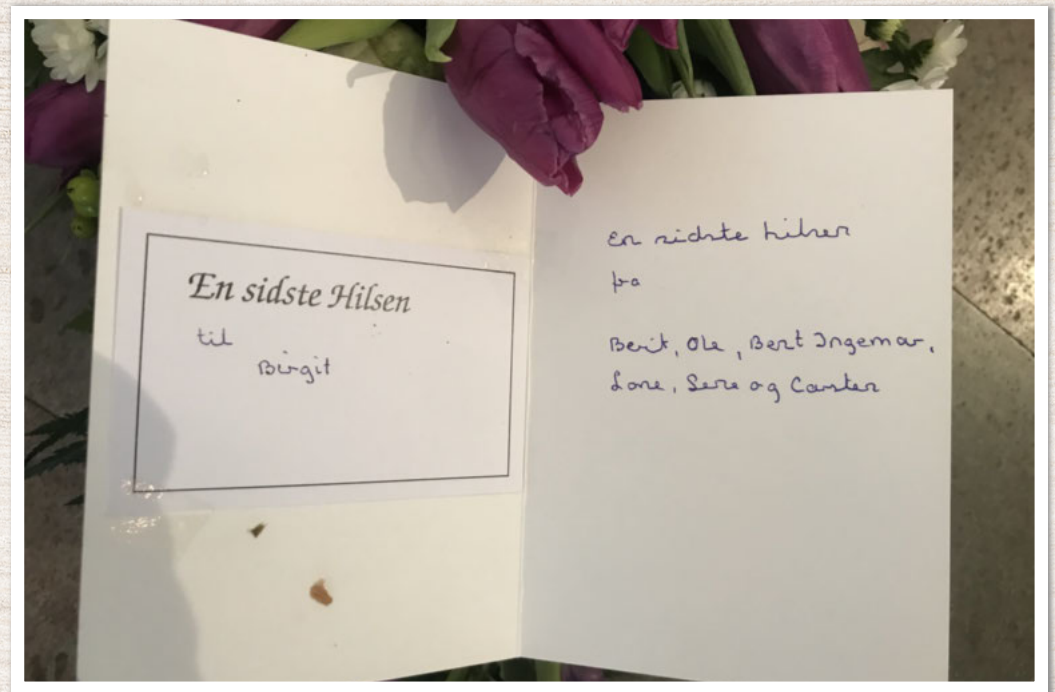 En sidste Hilsen
til
Birgit
En sidste hilsen
fra
Berit, Ole, Bent Ingemar,
Lone, Lene og Carsten